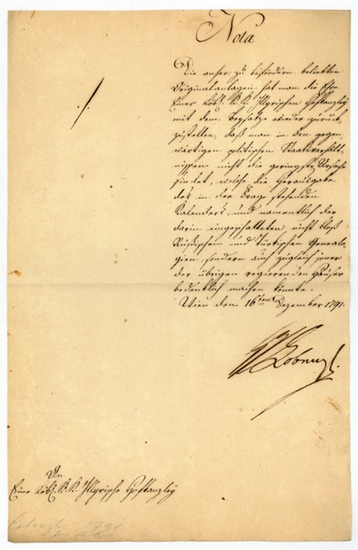 Nota
Die anher zu befördern beliebten
Originalanlagen hat man die Ehre
Einer Löbl. K. K. Illyrischen Hofkanzley
mit dem Beysatze wieder zurück
zustellen, daß man in dem gegen
wärtigen politischen Staatsverhält
nissen nicht die geringste Ursache
findet, welche die Herausgabe
des in der Frage stehenden
Kalenders, und namentlich der
darin eingeschalteten, nicht bloß
Rußischen und türkischen Genealo
gien, sondern auch zugleich jener
der übrigen regierenden Häuser
bedenklich machen könnte.
Wien den 16ten Dezember 1791.
Cobenzl
An
Eine Löbl. K. K. Illyrische Hofkanzley
Cobenzl 1791